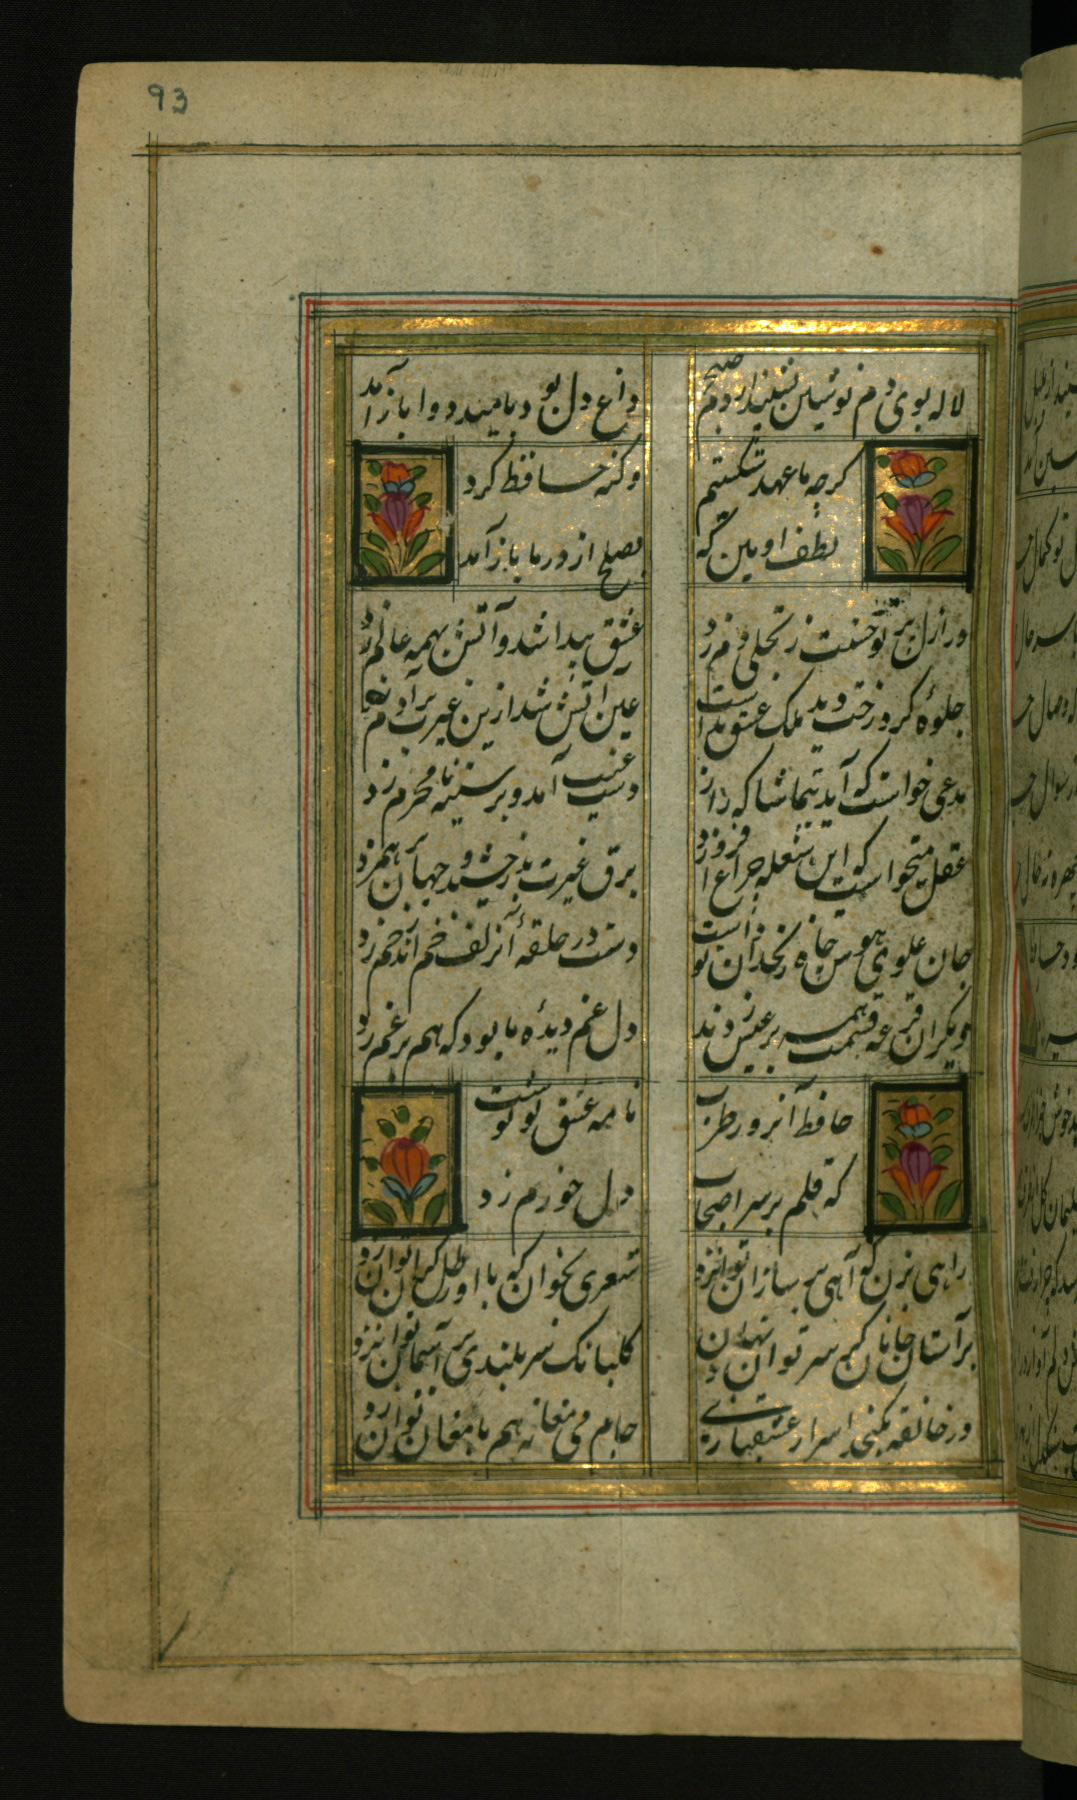 93
لاله بوی می نوشین بشنید از دم صبح
داغ دل بود بامید دوا باز آمد
کرچه ما عهد شکستیم
و کنه حافظ کرد
لطف او بین که
بصلح از در ما باز آمد
در ازل پرتو حسنت ز تجلی دم زد
عشق پیدا شد و آتش بهمه عالم زد
جلوهٔ کرد رخت دید ملک عشق نداشت
عین آتش شد ازین غیرت و بر آدم زد
مدعی خواست که آید بتماشاکه راز
دست غیب آمد و بر سینهٔ نامحرم زد
عقل میخواست کز این شعله چراغ افروزد
برق غیرت بدرخشید و جهان بر هم زد
جان علوی هوس چاه زنخدان تو داشت
دست در حلقهٔ آن زلف خم اندر خم زد
دیکران قرعه قسمت همه بر عیش زدند
دل غم دیدهٔ ما بود که هم بر غم زد
حافظ آنروز طرب
نامه عشق تو نوشت
که قلم بر سر اسباب
دل خورم زد
راهی بزن که آهی بر ساز آن توان زد
شعری بخوان که با او رطل کران توان زد
بر آستان جانان کر سر توان نهادن
کلبانک سربلندی بر آسمان توان زد
در خانقه نکنجد اسرار عشقبازی
جام می مغانه هم با مغان توان زد